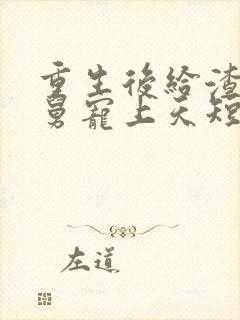 重生後給渣
舅寵上天短
左道